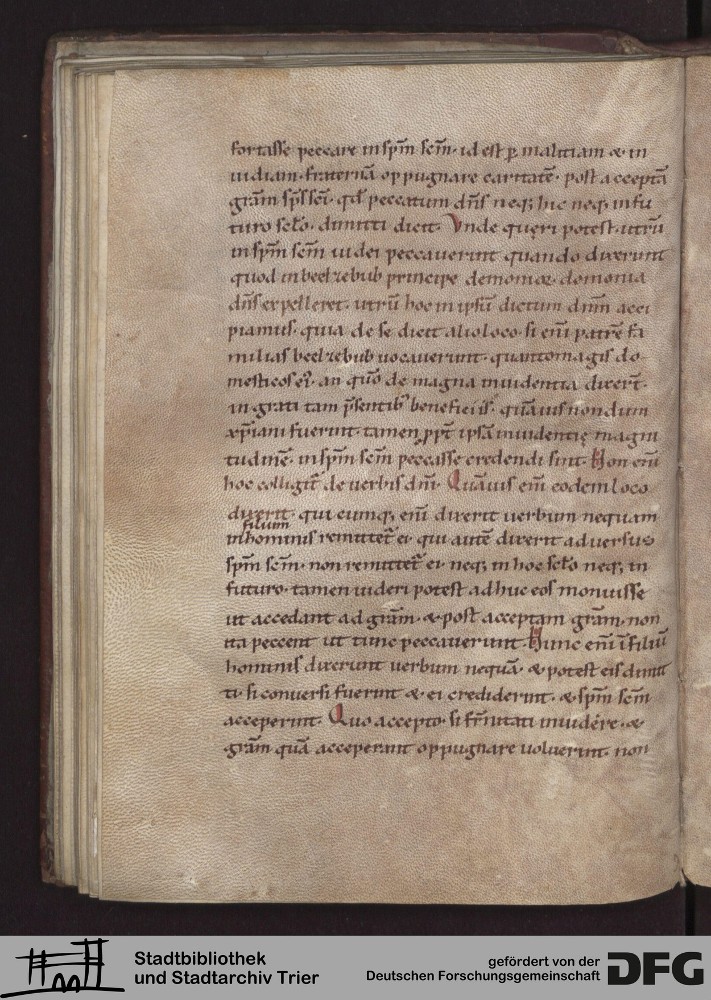 fortasse peccare in sp̄m sc̄m· id est ꝑ malitiam & in
uidiam· fraternā oppugnare caritatē· post acceptā
gr̄am sp̄s sc̄i· qd̄ peccatum dn̄s neq; hic neq; in fu
turo sc̄lo· dimitti dicit· Vnde queri potest· utrū
in sp̄m sc̄m iudei peccauerint quando dixerunt
quod in beelzebub principe demonioꝝ domonia
dn̄s expelleret· utrū hoc in ipsū dictum dn̄m acci
piamus· quia de se dicit alio loco· si eni͂ patrē fa
milias beelzebub uocauerunt· quantomagis do
mesticos ei᾽· an quō de magna inuidentia dixer̄t·
in grati tam p̄sentib᾽ beneficiis· quāuis nondum
xp̄iani fuerint· tamen ꝓpt̄ ipsā inuidentię magni
tudinē· in sp̄m sc̄m peccasse credendi sint· Non eni͂
hoc colligit̄ de uerbis dn̄i· Quāuis eni͂ eodem loco
dixerit· qui cumq; eni͂ dixerit uerbum nequam
filium
in hominis remittet̄ ei· qui autē dixerit aduersus
sp̄m sc̄m· non remittet̄ ei· neq; in hoc sc̄lo neq; in
futuro· tamen uideri potest ad hoc eos monuisse
ut accedant ad gr̄am· & post acceptam gr̄am· non
ita peccent ut tunc peccauerunt· Nunc eni͂ in filiū
hominis dixerunt uerbum nequā· & potest eis dimit
ti· si conuersi fuerint & ei crediderint· & sp̄m sc̄m
acceperint· Quo accepto· si fr̄nitati inuidēre· &
gr̄am quā acceperant oppugnare uoluerint· non
Stadtbibliothek
und Stadtarchiv Trier
gefördert von der
Deutschen Forschungsgemeinschaft
DFG